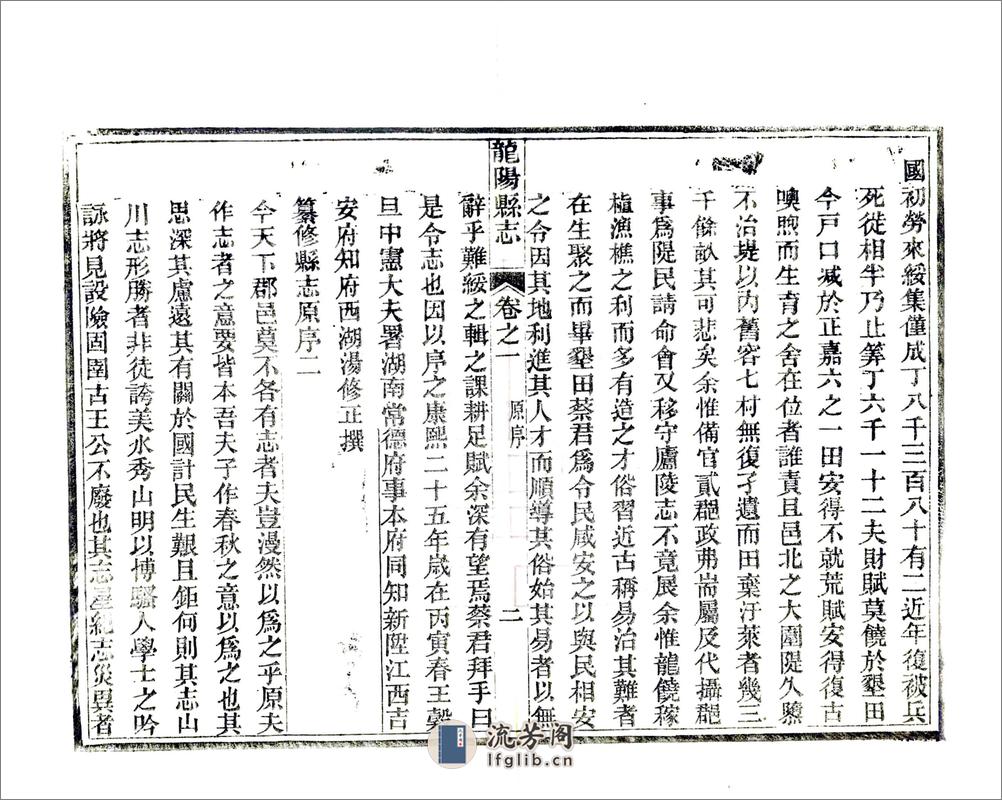 國初勞來綏集僅成丁八千三百八十有二近年復被兵
死徙相半乃止筭丁六千一十二夫財賦莫饒於墾田
今戶口減於正嘉六之一田安得不就荒賦安得復古
噢煦而生育之舍在位者誰責且邑北之大圍隄久隳
不治堤以內舊容七村無復孑遺而田棄汙萊者幾三
千餘畝其可悲矣余惟備官貳郡政弗耑屬及代攝郡
事爲隄民請命會又移守廬陵志不竟展余惟龍饒稼
植漁樵之利而多有造之才俗習近古稱易治其難者
在生聚之而畢墾田蔡君爲令民咸安之以與民相安
之令因其地利進其人才而順導其俗始其易者以無
龍陽縣志
卷之一
原序
二
辭乎難綏之輯之課耕足賦余深有望焉蔡君拜手曰
是令志也因以序之康熙二十五年歲在丙寅春王穀
旦中憲大夫署湖南常德府事本府同知新陞江西吉
安府知府西湖湯修正撰
纂修縣志原序二
今天下郡邑莫不各有志者夫豈漫然以爲之乎原夫
作志者之意要皆本吾夫子作春秋之意以爲之也其
思深其慮遠其有關於國計民生艱且鉅何則其志山
川志形勝者非徒誇美水秀山明以博騷人學士之吟
詠將見設險固圉古王公不廢也其志星紀志災異者
流芳阁
lfglib.cn